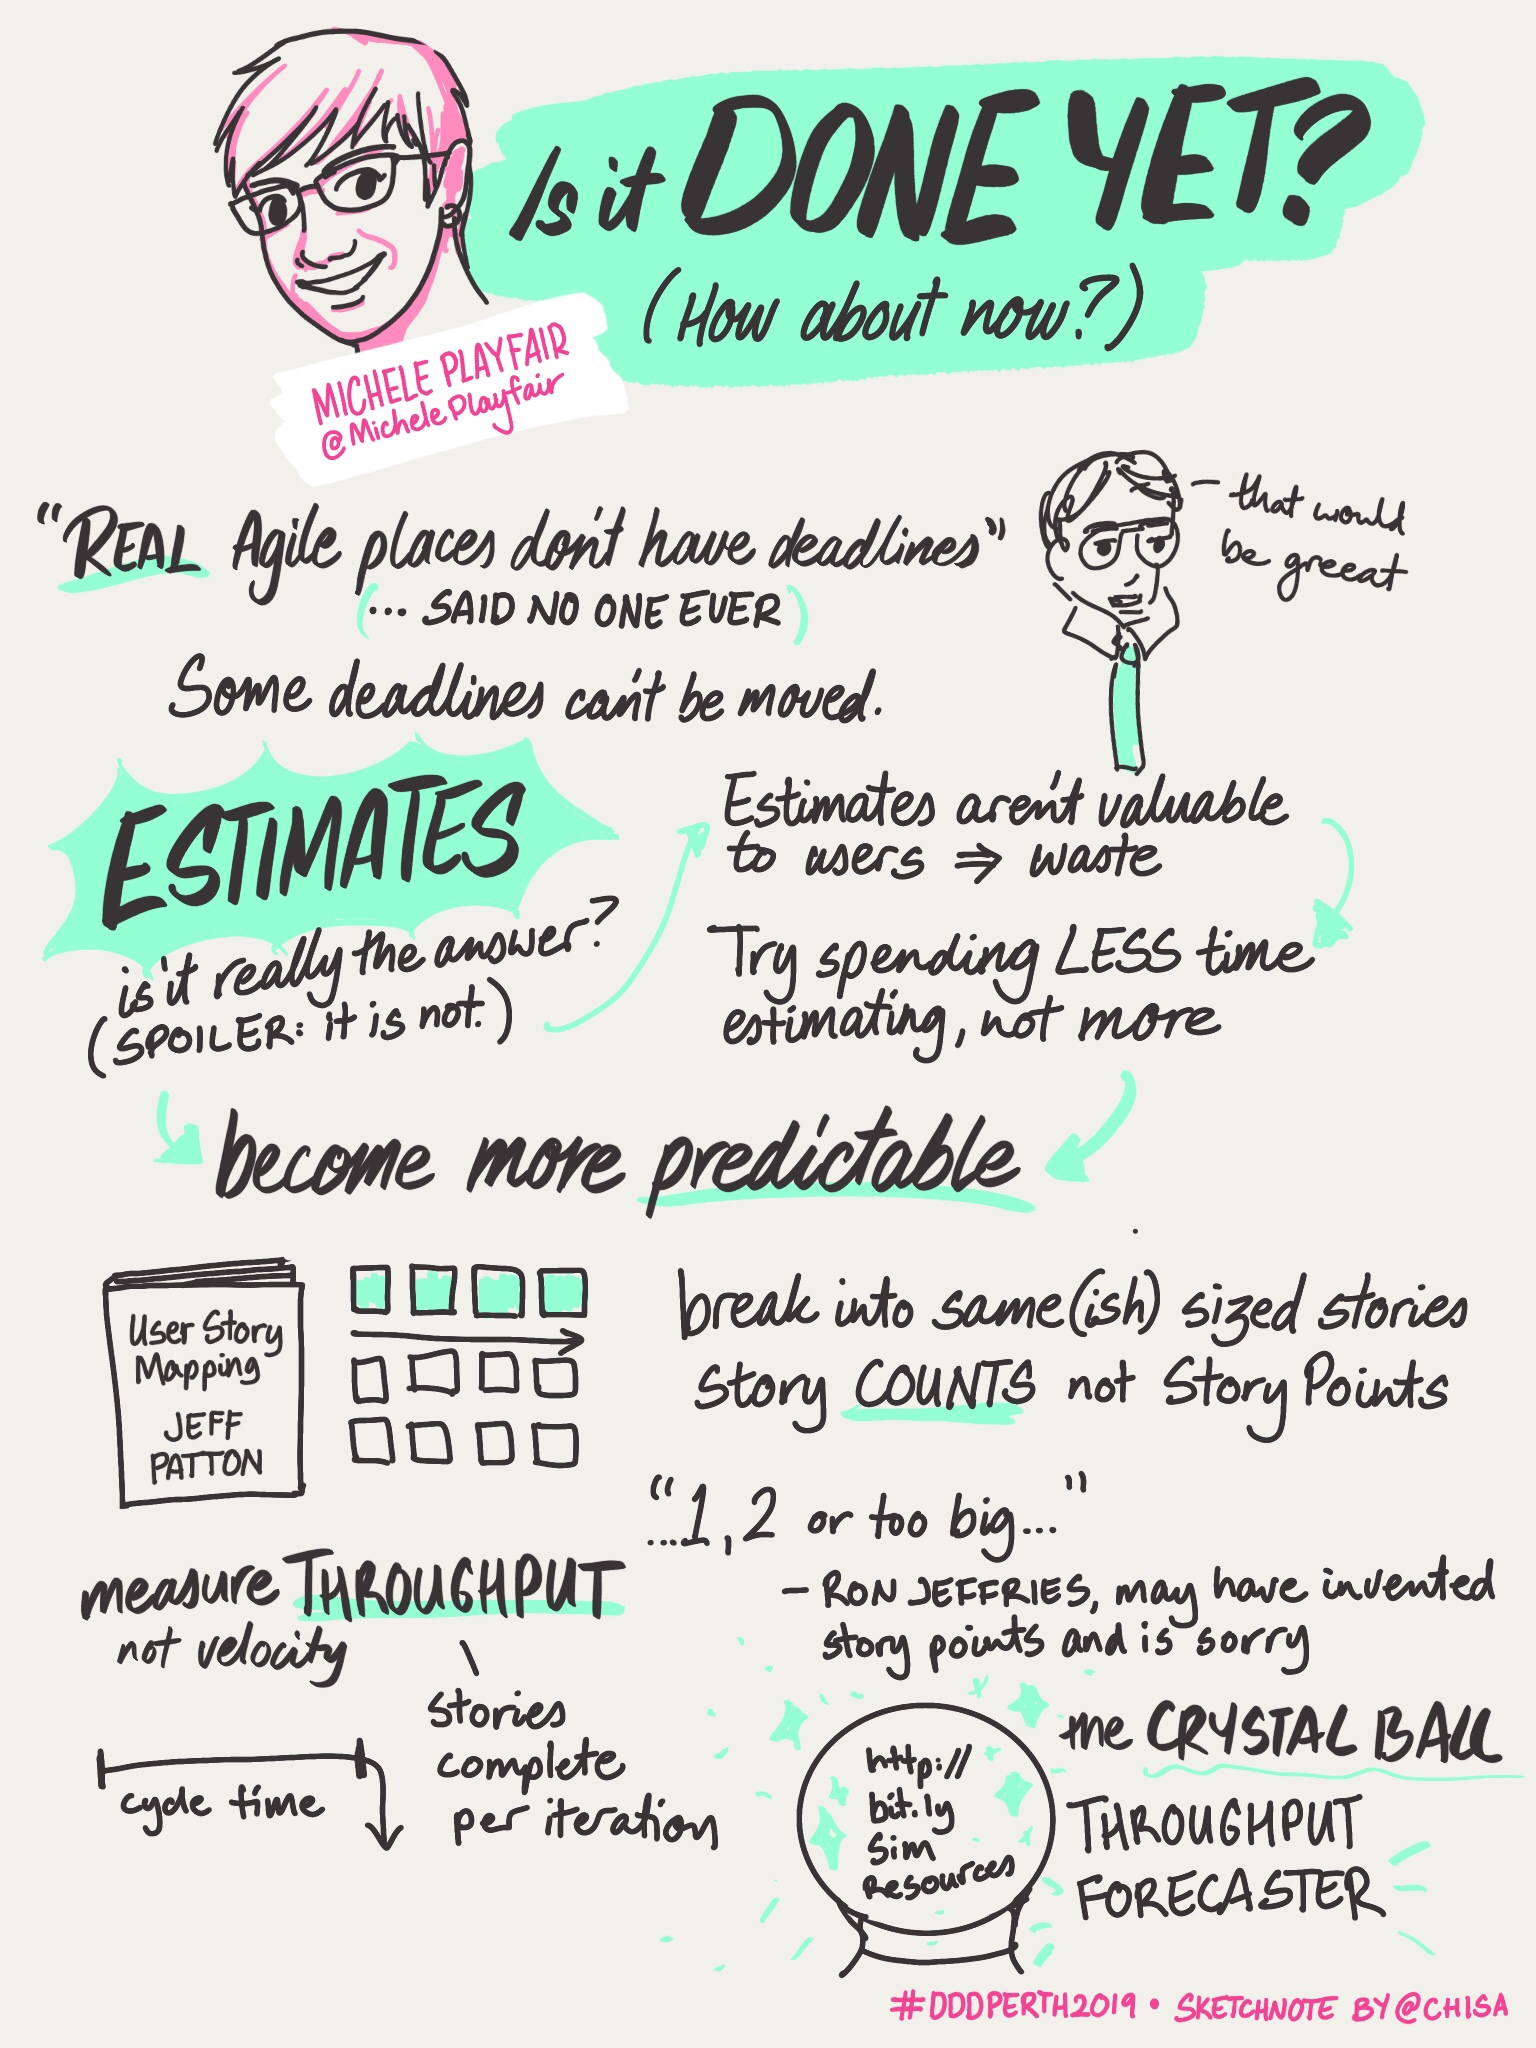 Is it DONE YET?
(How about now?)
MICHELE PLAYFAIR
@MichelePlayfair
"REAL Agile places don't have deadlines"
(... SAID NO ONE EVER)
- that would
be greeat
Some deadlines can't be moved.
ESTIMATES
is it really the answer?
(SPOILER: it is not.)
Estimates aren't valuable
to users ⇒ waste
Try spending LESS time
estimating, not more
become more predictable
User Story
Mapping
JEFF
PATTON
break into same(ish) sized stories
Story COUNTS not Story Points
"...1, 2 or too big..."
- RON JEFFRIES, may have invented
story points and is sorry
measure THROUGHPUT
not velocity
stories
complete
per iteration
cycle time
http://
bit.ly
Sim
Resources
the CRYSTAL BALL
THROUGHPUT
FORECASTER
#DDDPERTH2019 • SKETCHNOTE BY @CHISA